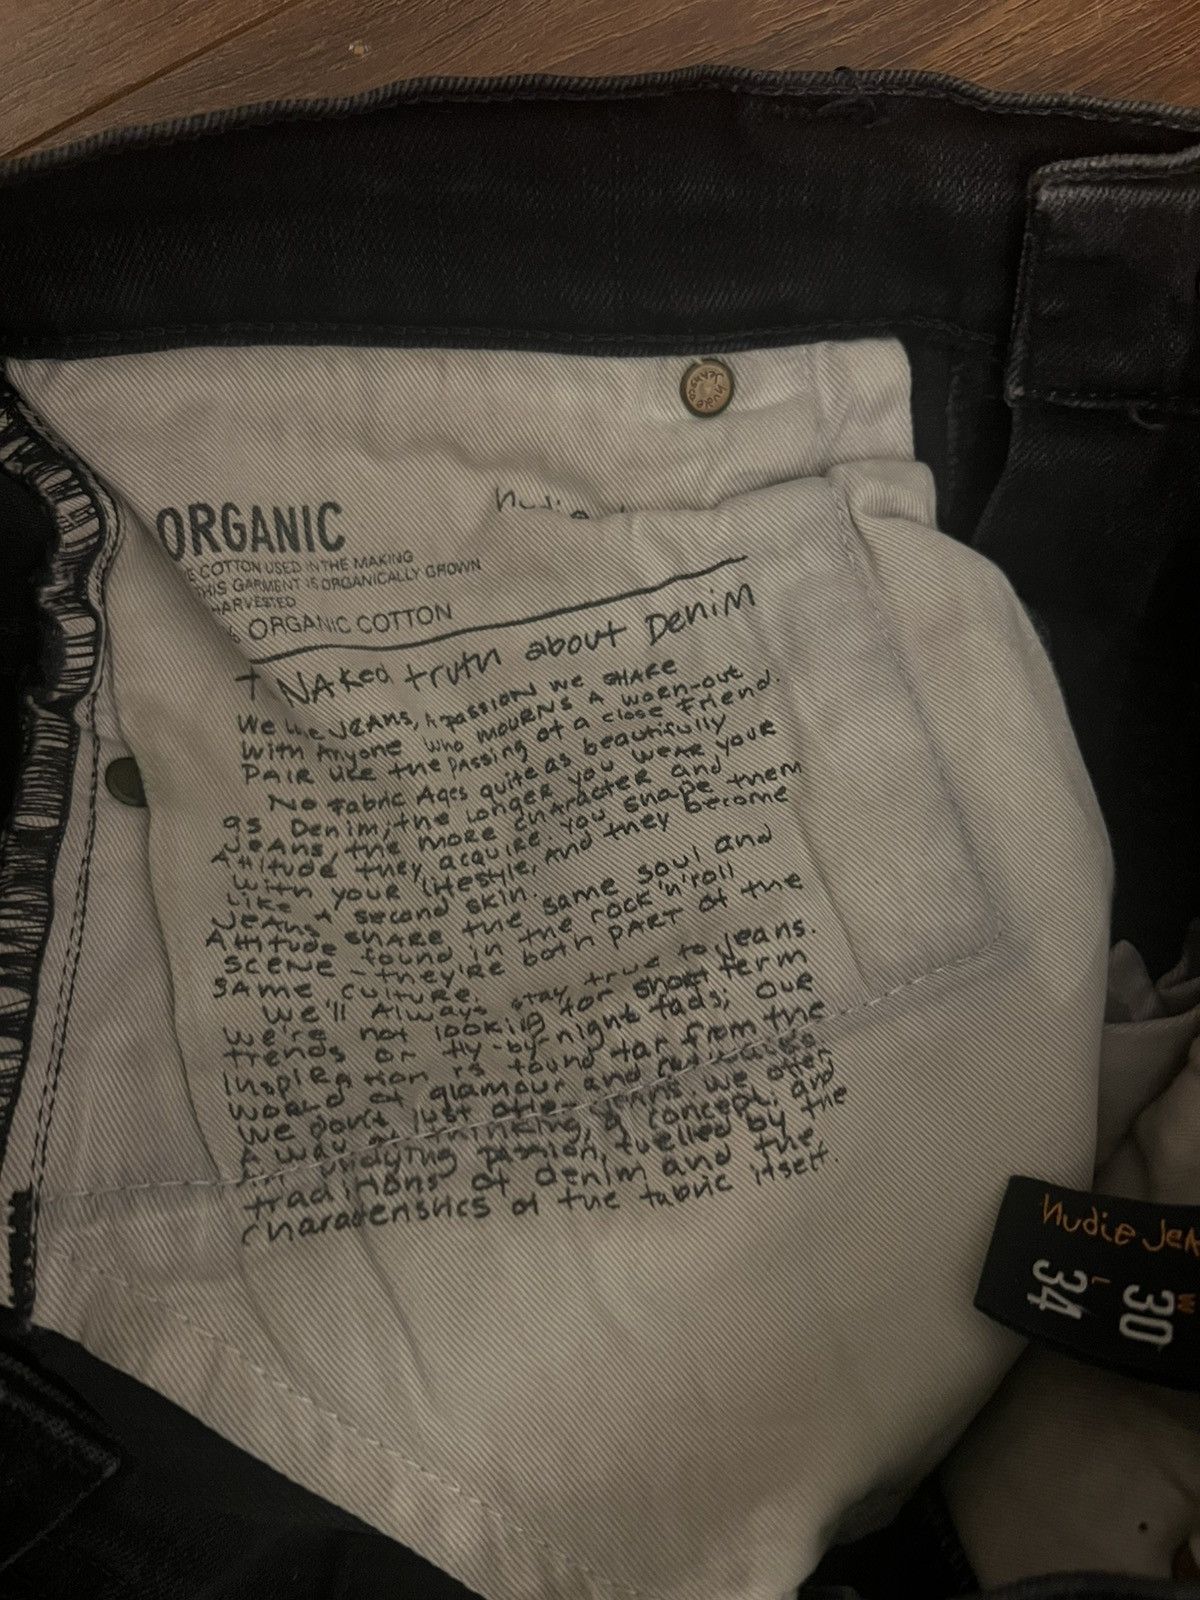 Nudie Jeansco
Nudie
ORGANIC
E COTTON USED IN THE MAKING
THIS GARMENT IS ORGANICALLY GROWN
HARVESTED
ORGANIC COTTON
NAKed truth about DeniM
We JEANS, A PASSION We SHARE
with Anyone who mourns A worn-out
PAIR like the PASSING of a close friend.
No fabric Ages quite as beautifully
as Denim; the longer you wear your
Jeans, the more character and
Attitude they acquire. You shape them
with your lifestyle, and they become
like A second skin.
Jeans share the same soul and
Attitude found in the rock 'n' roll
scene - they're both part of the
same culture.
We'll Always stay true to Jeans.
We're not looking for short term
trends or fly-by-night fads; our
Inspiration is found far from the
world of glamour and
We don't just offer Jeans. We offer
A way of thinking, a concept, and
An undying passion, fuelled by the
traditions of denim and the
characteristics of the fabric itself.
Nudie JeA
W
30
L
34